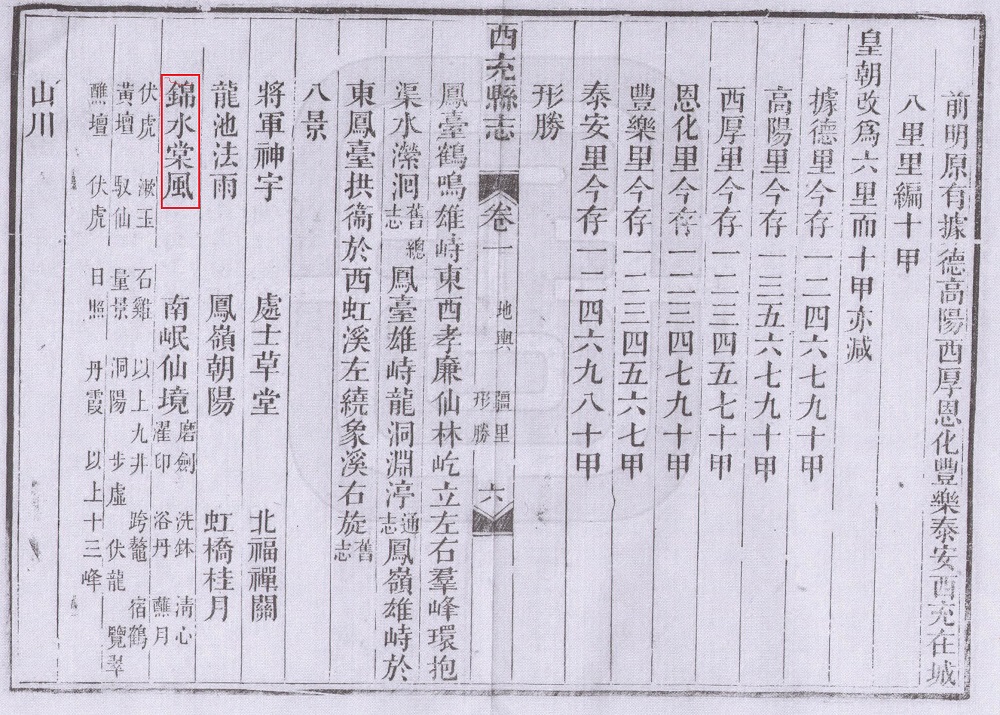 前明原有據德高陽西厚恩化豐樂泰安西充在城
八里里編十甲
皇朝改為六里而十甲亦減
據德里今存一二四六七九十甲
高陽里今存一三五六七九十甲
西厚里今存一二三四五七十甲
恩化里今存一二三四七九十甲
豐樂里今存一二三四五六七甲
泰安里今存一二四六九八十甲
形勝
西充縣志 卷一 地輿 疆里 形勝 六
鳳臺鶴鳴雄峙東西孝廉仙林屹立左右羣峰環抱
渠水瀠洄舊總志鳳臺雄峙龍洞淵渟通志鳳嶺雄峙於
東鳳臺拱衞於西虹溪左繞象溪右旋舊志
八景
將軍神宇 處士草堂 北福禪關
龍池法雨 鳳嶺朝陽 虹橋桂月
錦水棠風 南岷仙境 磨劍 洗鉢 清心 濯印 浴丹 蘸月
伏虎 漱玉 石雞 以上九井 跨鼇 宿鶴
黃壇 馭仙 量景 洞陽 步虛 伏龍 覽翠
醮壇 伏虎 日照 丹霞 以上十三峰
山川